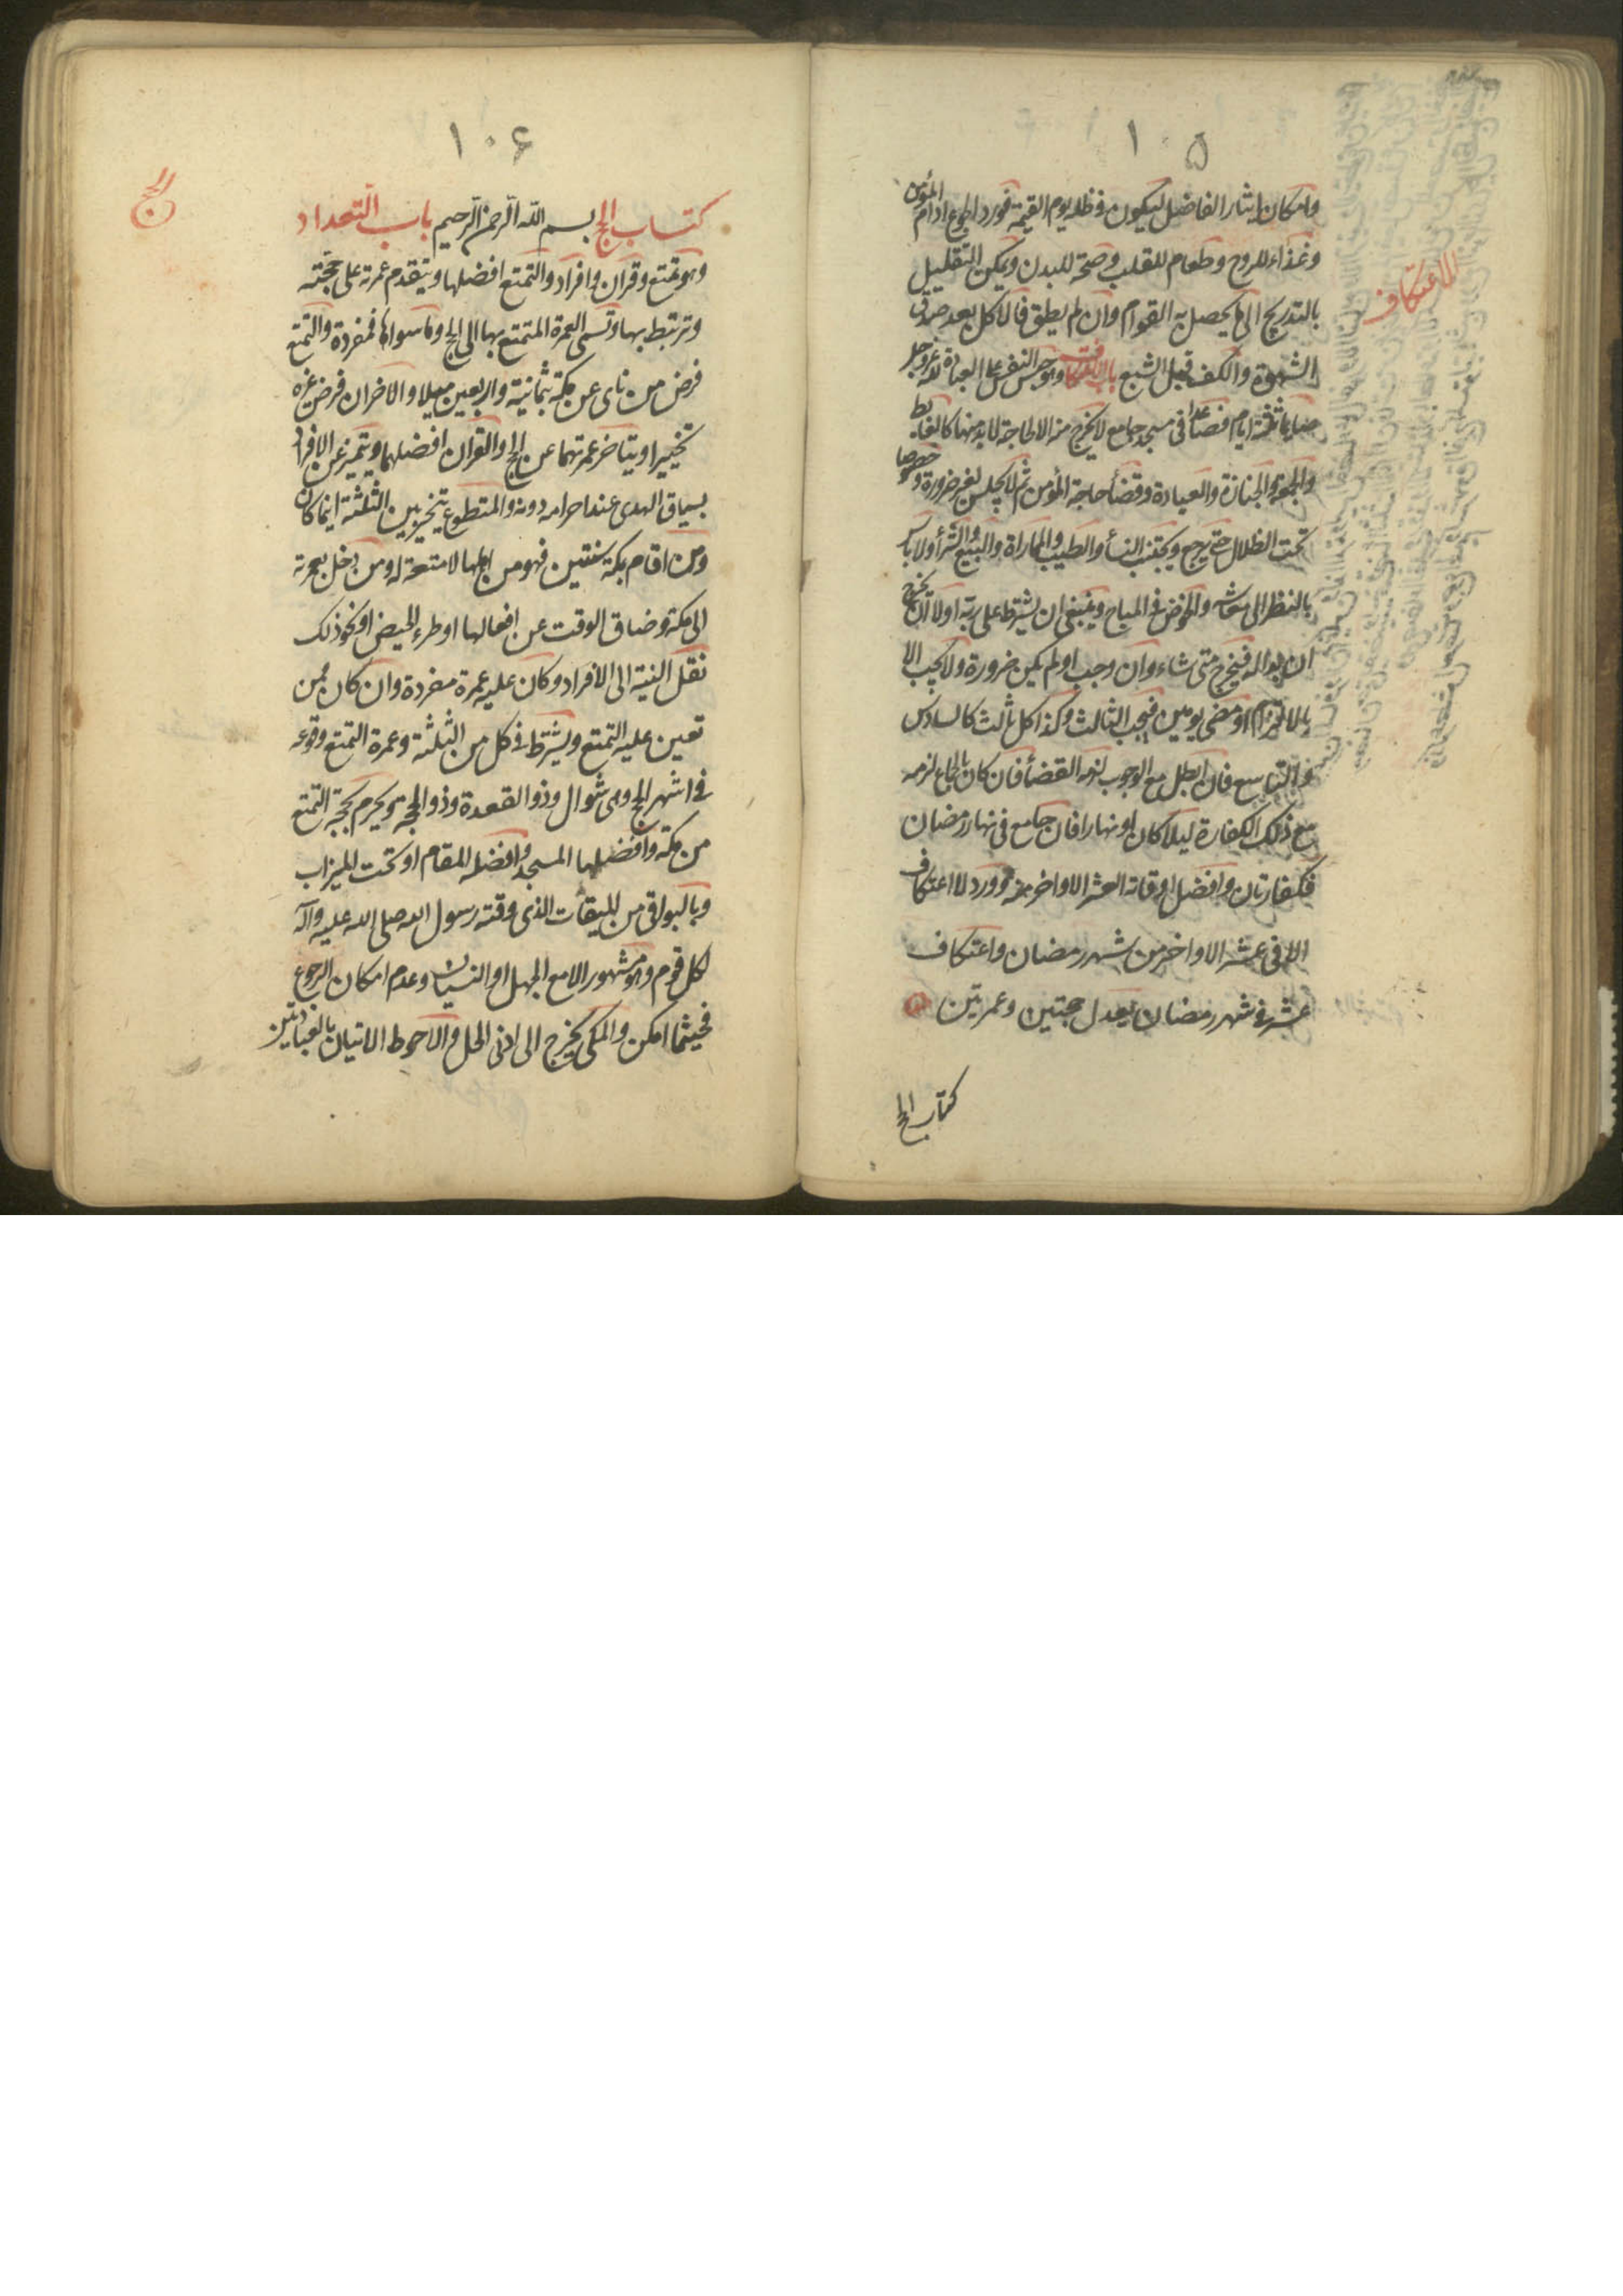 ١٠۵
وامكان ايثار الفاضل ليكون في ظله يوم القيمة فورد الجوع ادام المؤمن
وغذاء للروح وطعام للقلب وصحة للبدن ويمكن التقليل
بالتدريج الى ما يحصل به القوام وان لم يطق فالاكل بعد صدق
الشهوة والكف قبل الشبع باب الاعتكاف وهو حبس النفس على العبادة لله عز وجل
صايما ثلثة ايام فصاعدا في مسجد جامع لا يخرج منه الا لحاجة لا بد منها كالغايط
والجمعة والجنازة والعيادة وقضاء حاجة المؤمن ثم لا يجلس لغير ضرورة وخصوصا
تحت الظلال حتى يرجع ويجتنب النساء والطيب والمماراة والبيع والشراء ولا باس
بالنظر الى معاشه والخوض في المباح وينبغي ان يشترط على ربه اولا ان يخرج
ان بدا له فيخرج متى شاء وان وجب او لم يكن ضرورة ولا يجب الا
بالالتزام او مضى يومين فيجب الثالث وكذا كل ثالث كالسادس
والتاسع فان ابطل مع الوجوب لزمه القضاء فان كان بالجماع لزمه
مع ذلك الكفارة ليلا كان او نهارا فان جامع في نهار رمضان
فكفارتان وافضل اوقاته العشر الاواخر منه وورد لا اعتكاف
الا في عشر الاواخر من شهر رمضان واعتكاف
عشر في شهر رمضان يعدل حجتين وعمرتين
كتاب الج
الاعتكاف
١٠۶
الحج
كتاب الحج بسم الله الرحمن الرحيم باب التعداد
وهو تمتع وقران وافراد والتمتع افضلها ويتقدم عمرته على حجته
وترتبط بها وتسمى العمرة المتمتع بها الى الحج وما سواها فمفردة والتمتع
فرض من ناى عن مكة بثمانية واربعين ميلا والاخران فرض غيره
تخييرا ويتاخر عمرتهما عن الحج والقران افضلهما ويتميز عن الافراد
بسياق الهدى عند احرامه دونه والمتطوع يتخير بين الثلثة اينما كان
ومن اقام بمكة سنتين فهو من اهلها لا متعة له ومن دخل بعمرته
الى مكة وضاق الوقت عن افعالها او طرء الحيض او نحو ذلك
نقل النية الى الافراد وكان عليه عمرة مفردة وان كان ممن
تعين عليه التمتع ويشترط في كل من الثلثة وعمرة التمتع وقوعه
في اشهر الحج وهي شوال وذو القعدة وذو الحجة ويحرم بحجة التمتع
من مكة وافضلها المسجد وافضله المقام او تحت الميزاب
وبالبواقي من الميقات الذى وقته رسول الله صلى الله عليه وآله
لكل قوم وهو مشهور الا مع الجهل او النسيان وعدم امكان الرجوع
فحيثما امكن والمكى يخرج الى ادنى الحل والاحوط الاتيان بالعبادتين